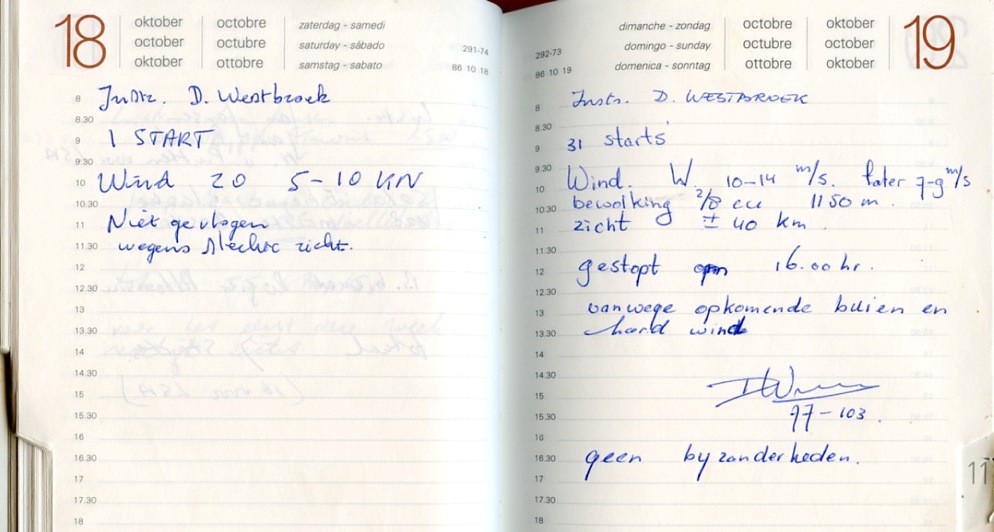 18
oktober octobre zaterdag - samedi
october octubre saturday - sábado 291-74
oktober ottobre samstag - sabato 86 10 18
8 Instr. D. Westbroek
8.30
9 1 START
9.30
10 Wind 20 5-10 KN
10.30
11 Niet gevlogen
11.30 wegens slecht zicht.
12
12.30
13
13.30
14
14.30
15
15.30
16
16.30
17
17.30
18
dimanche - zondag octobre oktober 19
292-73 domingo - sunday octubre october
86 10 19 domenica - sonntag ottobre oktober
8 Instr. D. WESTBROEK
8.30
9 31 starts
9.30
10 Wind. W. 10-14 m/s. later 7-9 m/s
10.30 bewolking 2/8 cu 1150 m.
11 zicht ± 40 km.
11.30
12 gestopt om 16.00 hr.
12.30
13 vanwege opkomende buien en
13.30 hard wind
14
14.30
15
15.30 77-103.
16
16.30 geen byzonderheden.
17
17.30
18
11